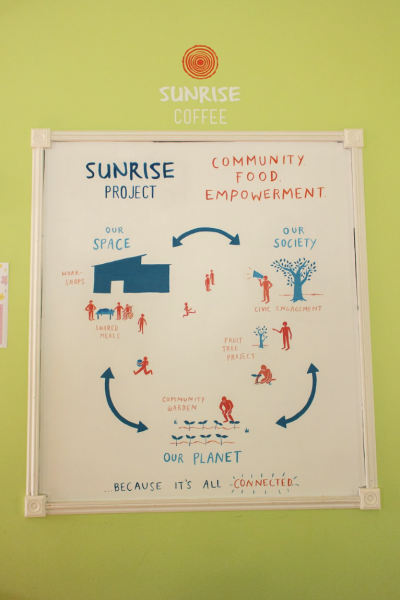 SUNRISE
COFFEE
SUNRISE
PROJECT
COMMUNITY.
FOOD.
EMPOWERMENT.
OUR
SPACE
OUR
SOCIETY
WORK-
SHOPS
SHARED
MEALS
CIVIC ENGAGEMENT
FRUIT
TREE
PROJECT
COMMUNITY
GARDEN
OUR PLANET
...BECAUSE IT'S ALL CONNECTED.